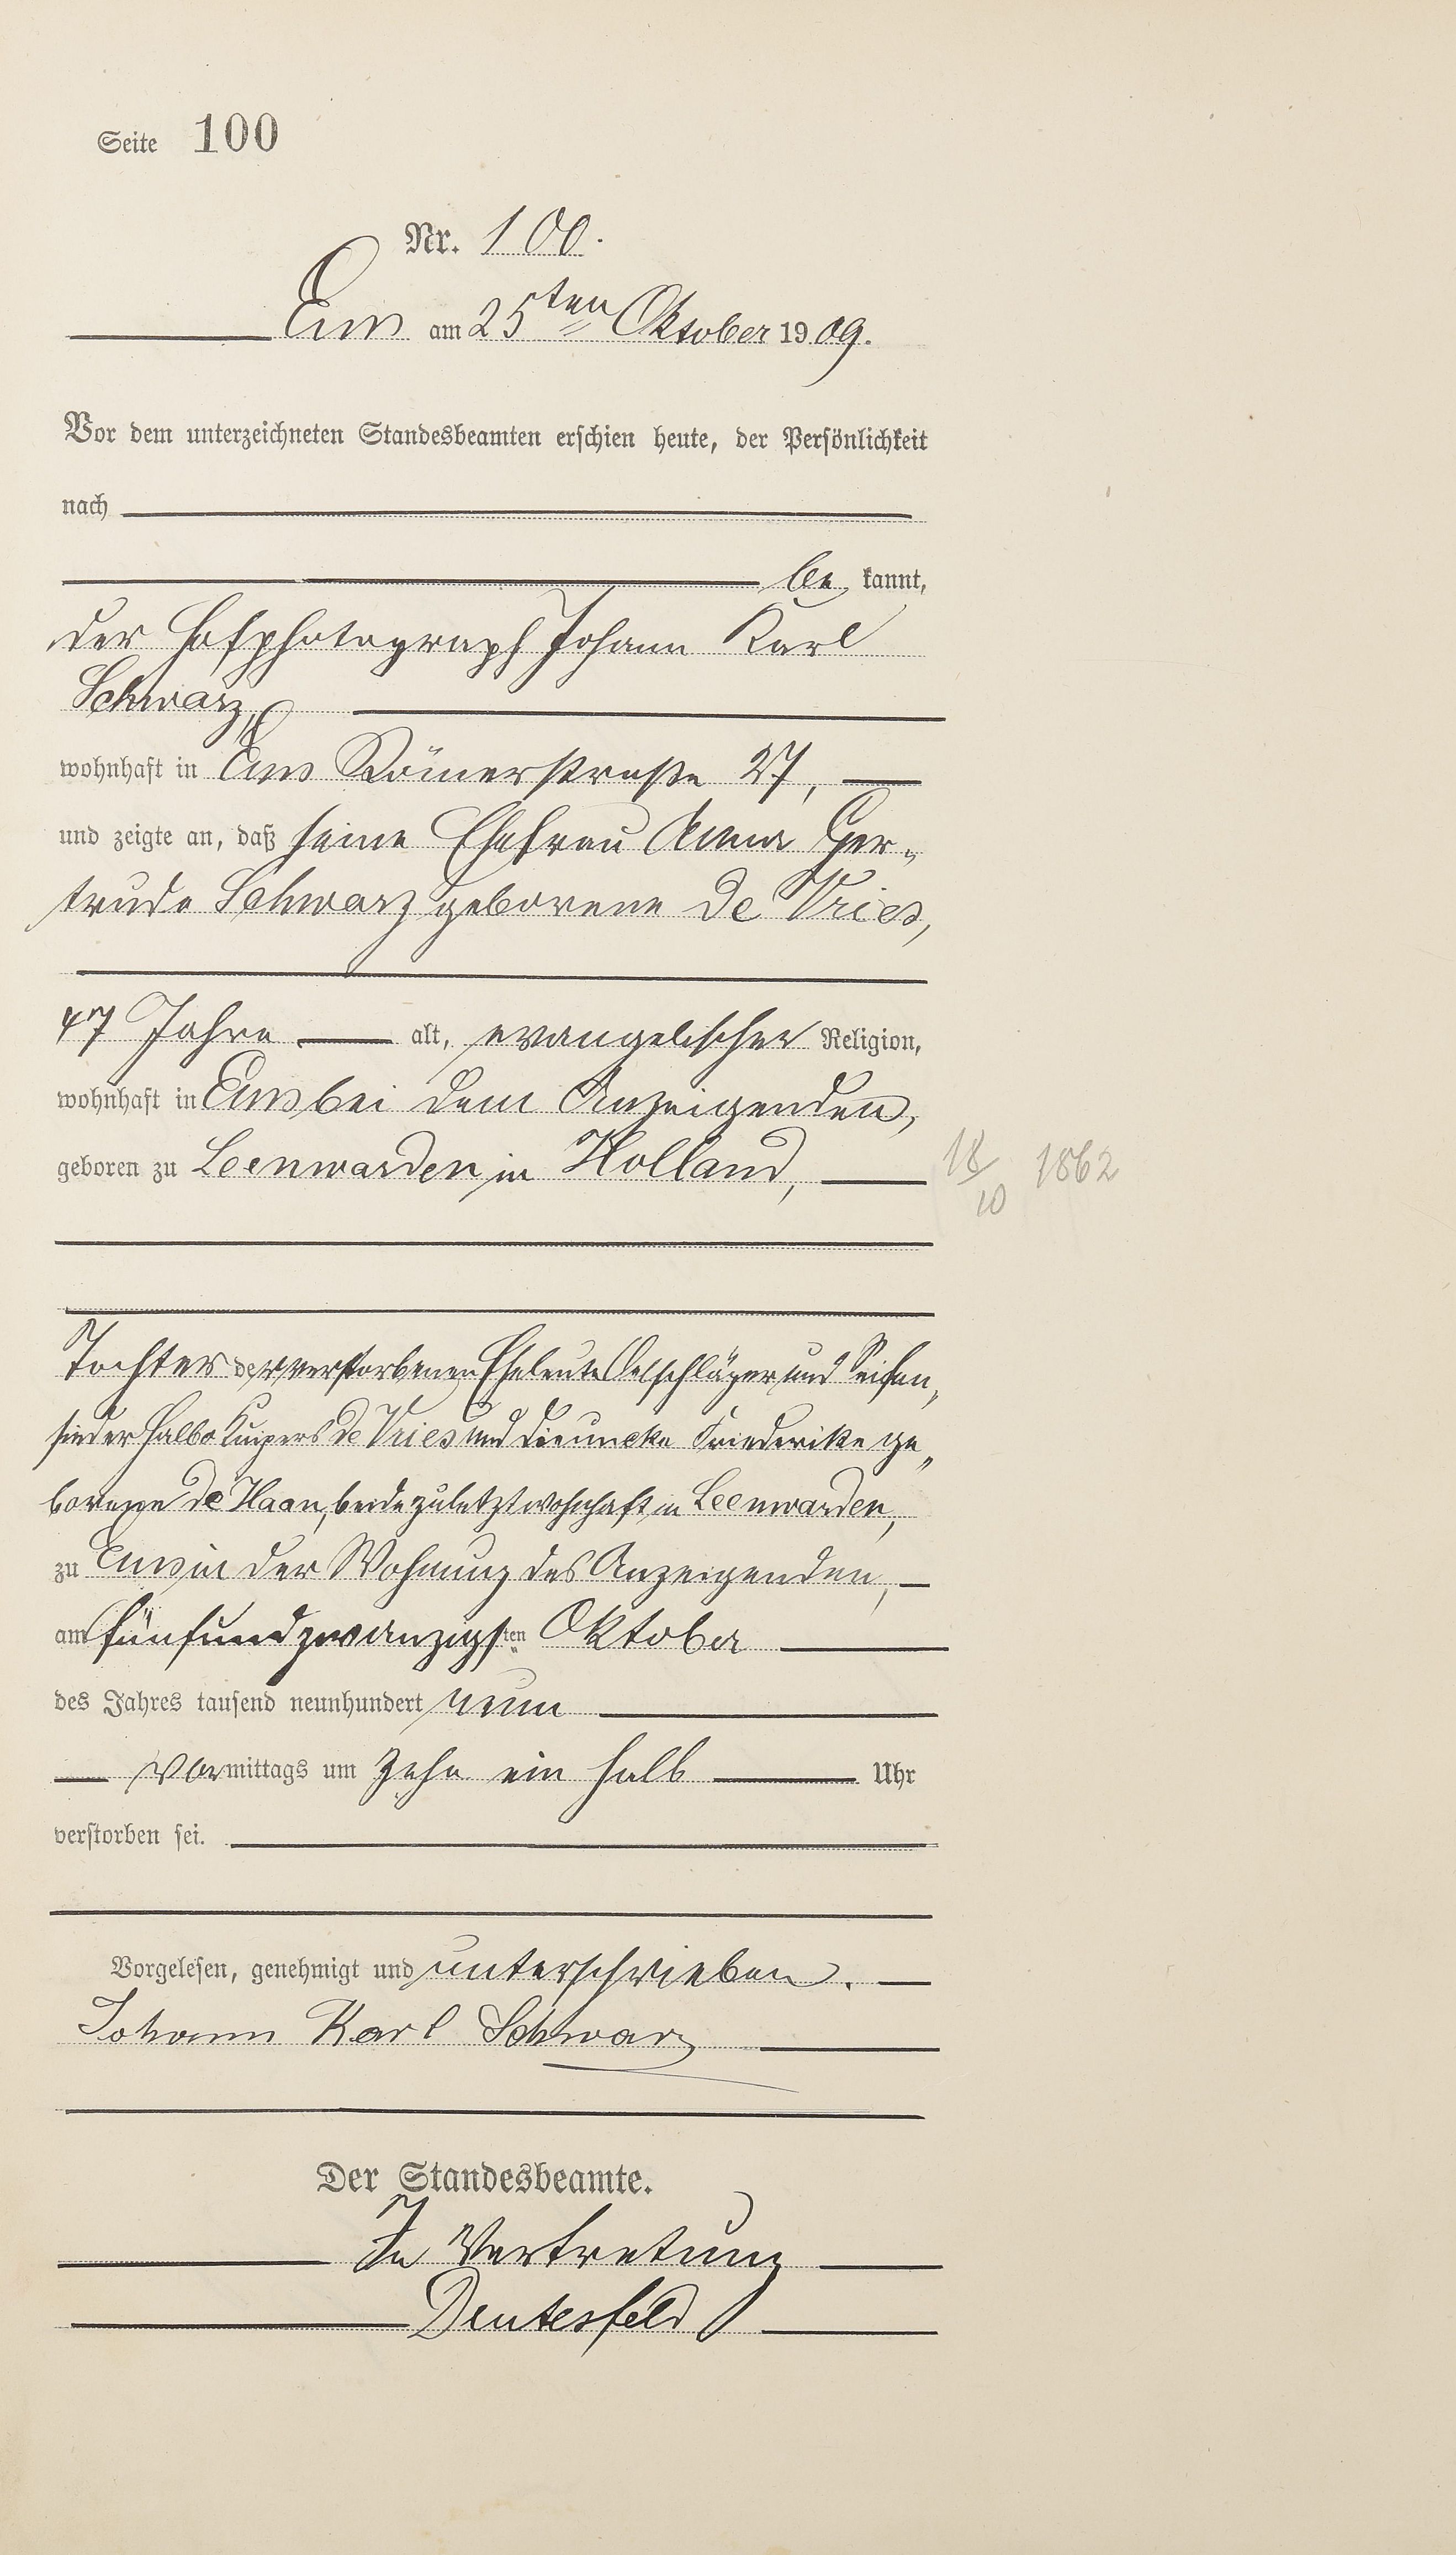 Seite 100
Nr. 100.
Ems am 25ten Oktober 1909.
Vor dem unterzeichneten Standesbeamten erschien heute, der Persönlichkeit
nach
be kannt,
der Hofphotograph Johann Karl
Schwarz,
wohnhaft in Ems Römerstraße 27,
und zeigte an, daß seine Ehefrau Anna Ger-
trude Schwarz geborene de Vries,
47 Jahre alt, evangelischer Religion,
wohnhaft in Ems bei dem Anzeigenden,
geboren zu Leenwarden in Holland,
18/10 1862
Tochter der verstorbenen Eheleute Oelschläger und Seifen-
sieder Halbo Kuipers de Vries und Friederike ge-
borene de Haan, beide zuletzt wohnhaft in Leenwarden,
zu Ems in der Wohnung des Anzeigenden,
am fünfundzwanzigsten Oktober
des Jahres tausend neunhundert neun
Vormittags um zehn ein halb Uhr
verstorben sei.
Vorgelesen, genehmigt und unterschrieben.
Johann Karl Schwarz
Der Standesbeamte.
In Vertretung
Deutesfeld